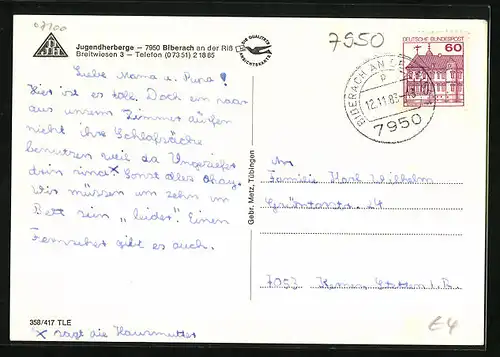 07100
Jugendherberge – 7950 Biberach an der Riß
Breitwiesen 3 – Telefon (07351) 21885
DIE QUALITÄTS
ANSICHTSKARTE
7950
DEUTSCHE BUNDESPOST
60
BIBERACH AN DER
12.11.83
7950
Liebe Mama u. Papa!
Hier ist es toll. Doch ein paar
aus unserem Zimmer dürfen
nicht ihre Schlafsäcke
benutzen weil da Ungeziefer
drin sind x Sonst alles okay.
Wir müssen um zehn im
Bett sein "leider". Einen
Fernseher gibt es auch.
Gebr. Metz, Tübingen
An
Familie Karl Wilhelm
14
7053 Kernen Stetten i. R.
358/417 TLE
x sagt die Hausmutter
E4